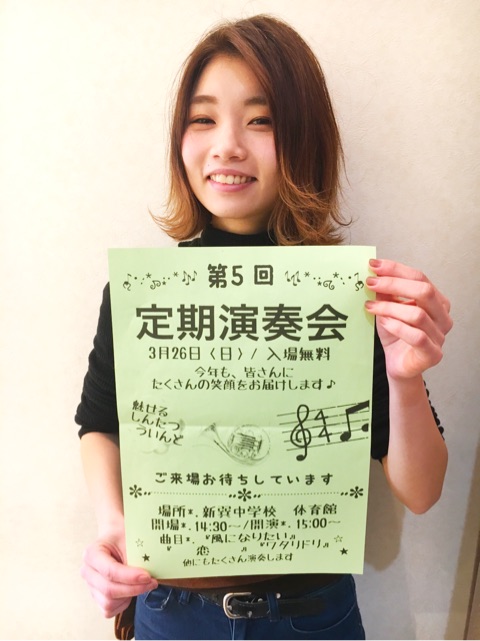 第5回
定期演奏会
3月26日(日)/入場無料
今年も、皆さんに
たくさんの笑顔をお届けします♪
魅せる
しんたつ
ういんど
ご来場お待ちしています
場所*.新巽中学校 体育館
開場*.14:30~/開演*.15:00~
曲目*.『風になりたい』
『恋』 『ワタリドリ』
他にもたくさん演奏します